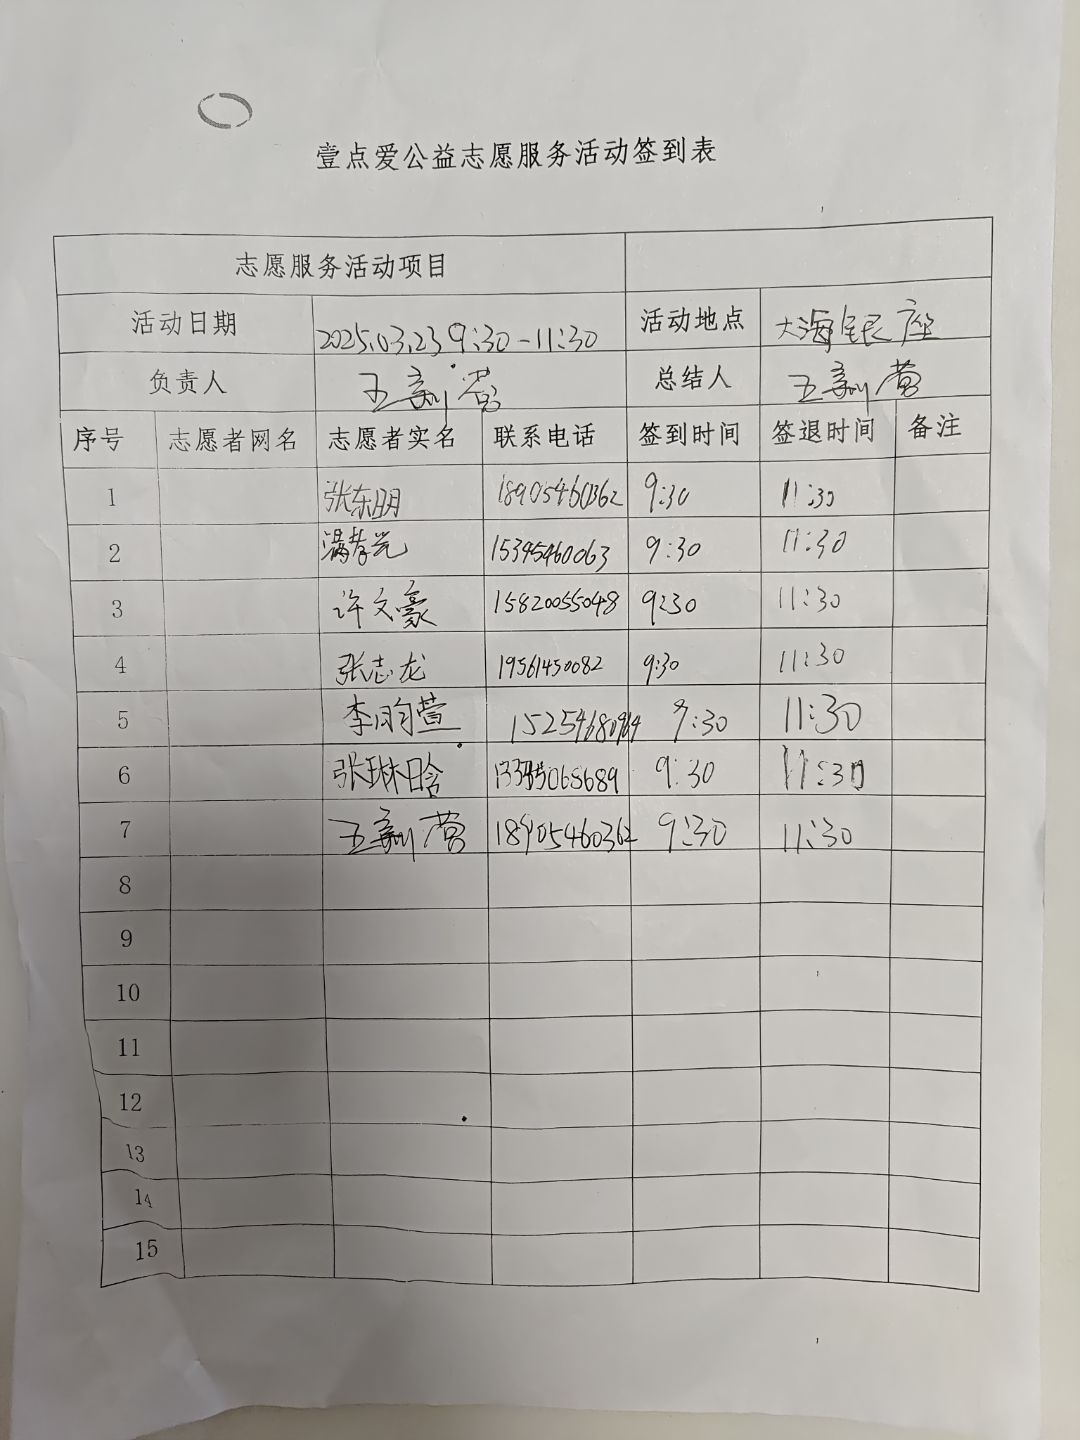 壹点爱公益志愿服务活动签到表
志愿服务活动项目
活动日期 2025.03.23 9:30-11:30 活动地点 大海银座
负责人 王新营 总结人 王新营
序号 志愿者网名 志愿者实名 联系电话 签到时间 签退时间 备注
1 张东明 18905460362 9:30 11:30
2 满孝光 15345460063 9:30 11:30
3 许文豪 15820055048 9:30 11:30
4 张志龙 19561450082 9:30 11:30
5 李昀萱 9:30 11:30
6 张琳晗 9:30 11:30
7 王新营 18905460362 9:30 11:30
8
9
10
11
12
13
14
15